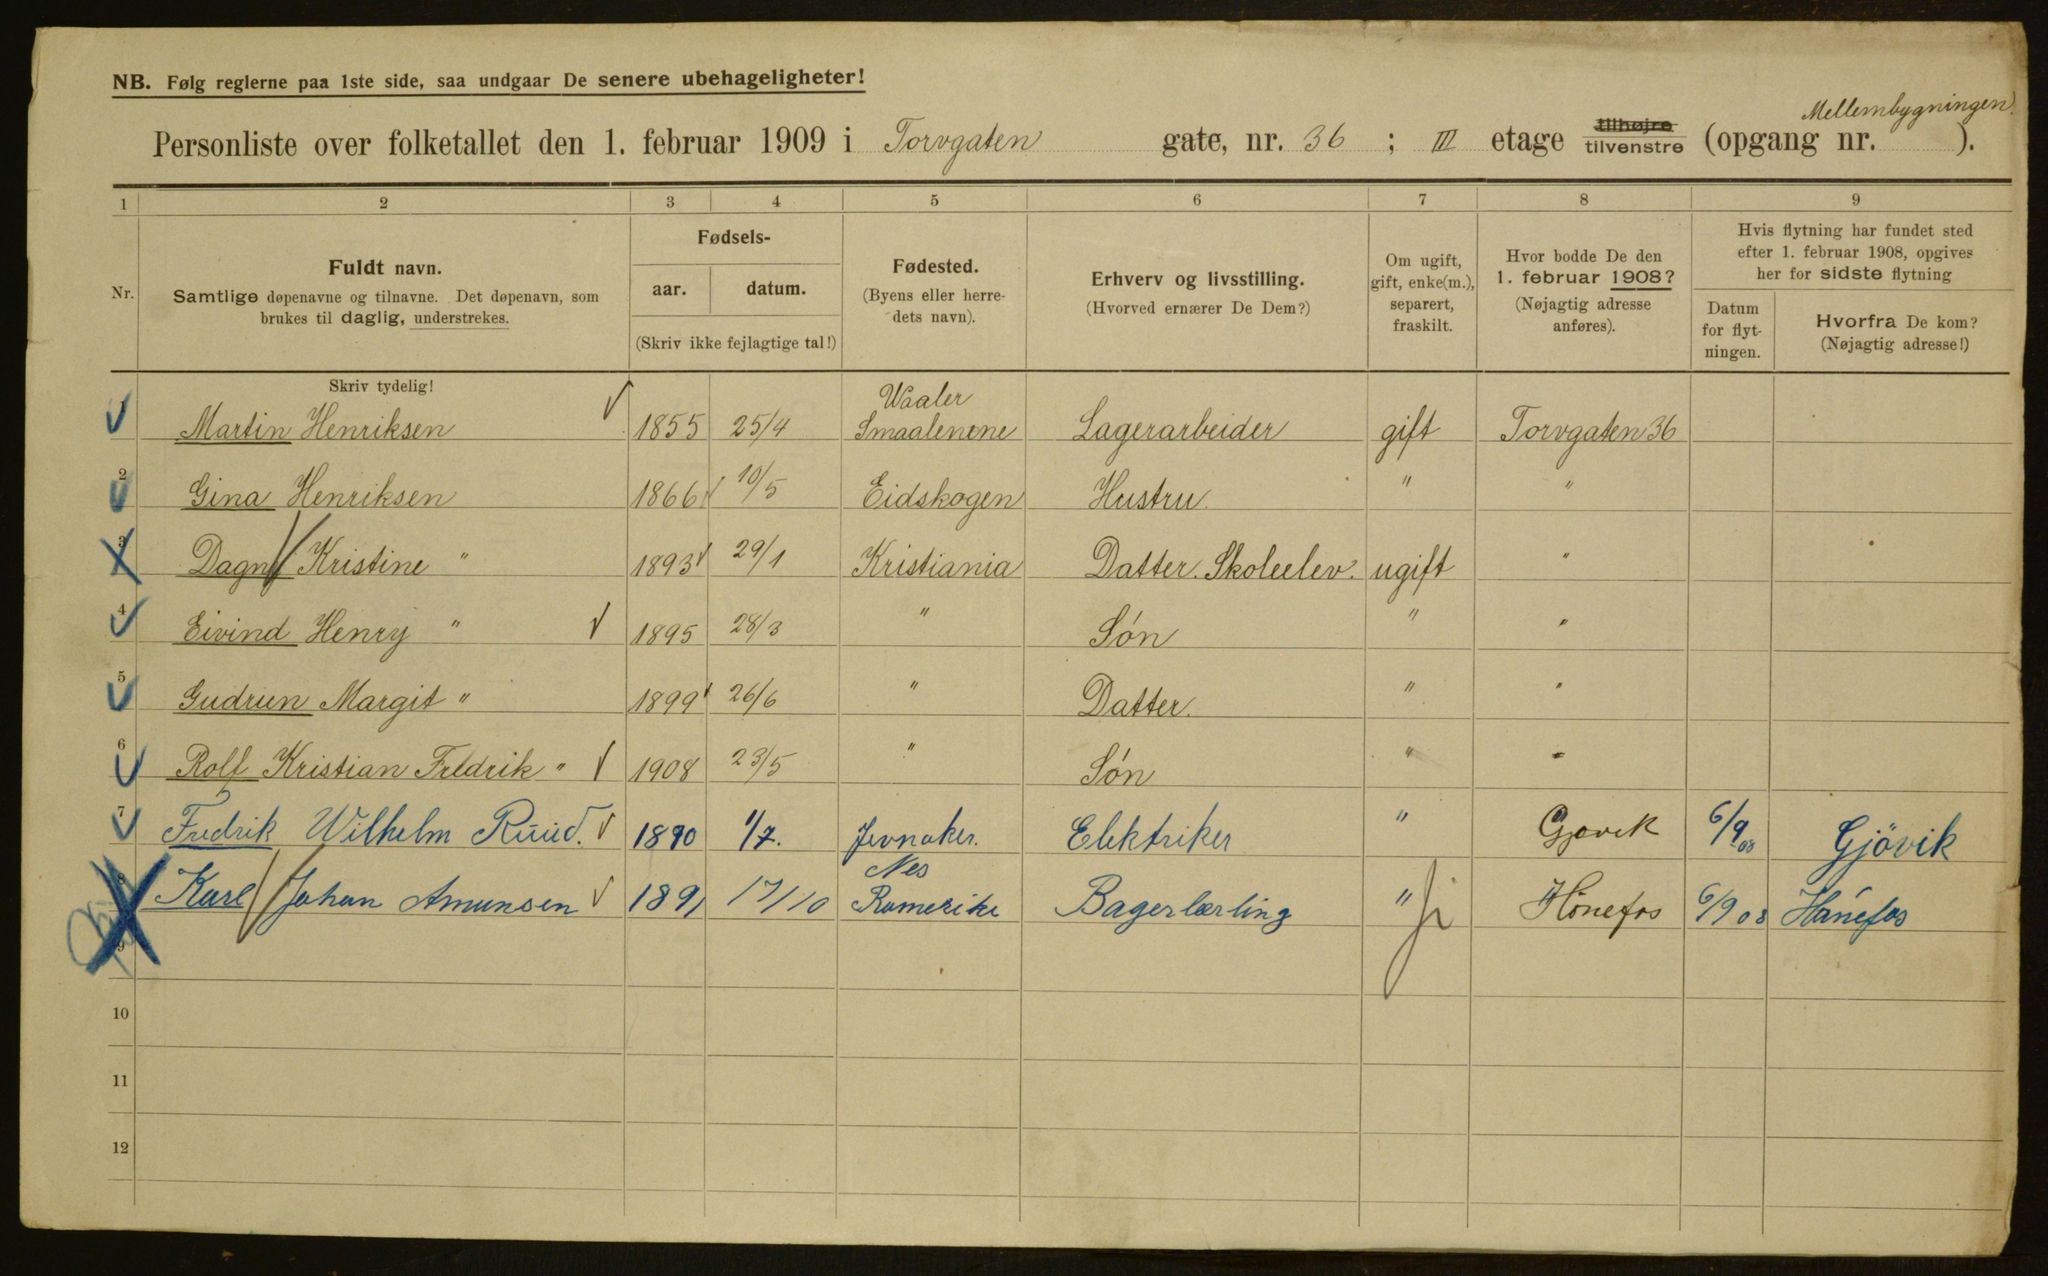 NB. Følg reglerne paa 1ste side, saa undgaar De senere ubehageligheter!
Mellembygningen
Personliste over folketallet den 1. februar 1909 i Torvgaten gate, nr. 36 ; III etage tilhøjre tilvenstre (opgang nr. ).
1 2 3 4 5 6 7 8 9
Nr.
Fuldt navn.
Samtlige døpenavne og tilnavne. Det døpenavn, som
brukes til daglig, understrekes.
Fødsels-
aar. datum.
(Skriv ikke fejlagtige tal!)
Fødested.
(Byens eller herre-
dets navn).
Erhverv og livsstilling.
(Hvorved ernærer De Dem?)
Om ugift,
gift, enke(m.),
separert,
fraskilt.
Hvor bodde De den
1. februar 1908?
(Nøjagtig adresse
anføres).
Hvis flytning har fundet sted
efter 1. februar 1908, opgives
her for sidste flytning
Datum
for flyt-
ningen.
Hvorfra De kom?
(Nøjagtig adresse!)
Skriv tydelig!
Waaler
1 Martin Henriksen 1855 25/4 Smaalenene Lagerarbeider gift Torvgaten 36
2 Gina Henriksen 1866 10/5 Eidskogen Hustru. " "
3 Dagny Kristine " 1893 29/1 Kristiania Datter. Skoleelev. ugift "
4 Eivind Henry " 1895 28/3 " Søn " "
5 Gudrun Margit " 1899 26/6 " Datter. " "
6 Rolf Kristian Fredrik " 1908 23/5 " Søn " "
7 Fredrik Wilhelm Ruud. 1890 1/7. Jevnaker. Elektriker " Gjøvik 6/9 08 Gjövik
Nes
8 Karl Johan Amunsen 1891 17/10 Romerike Bagerlærling " Hönefos 6/9 08 Hönefos
9
10
11
12